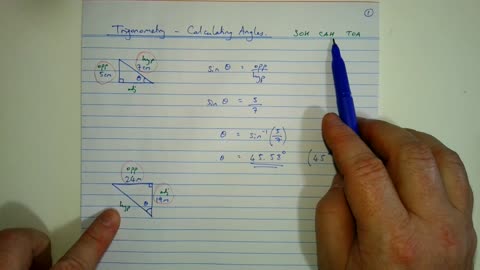 ①
Trigonometry - Calculating Angles.
SOH CAH TOA
opp
5cm
hyp
7cm
θ
adj
sin θ = opp/hyp
sin θ = 5/7
θ = sin⁻¹(5/7)
θ = 45.58° (45°
opp
24m
adj
19m
hyp
θ